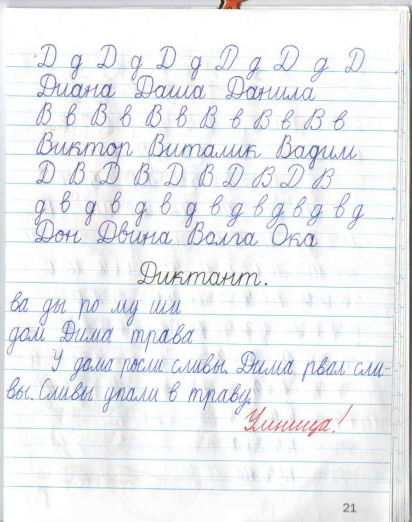 Д д Д д Д д Д д Д д Д
Диана Даша Данила
В в В в В в В в В в В в
Виктор Виталик Вадим
Д В Д В Д В Д В Д В
д в д в д в д в д в д в д в д
Дон Двина Волга Ока
Диктант.
ва ды ро му ши
дом Дима трава
У дома росли сливы. Дима рвал сли-
вы. Сливы упали в траву.
Умница!
21